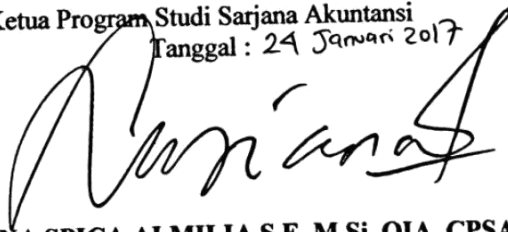 Ketua Program Studi Sarjana Akuntansi
Tanggal : 24 Januari 2017
SPICA ALMILIA S.E, M.Si, QIA, CPSA